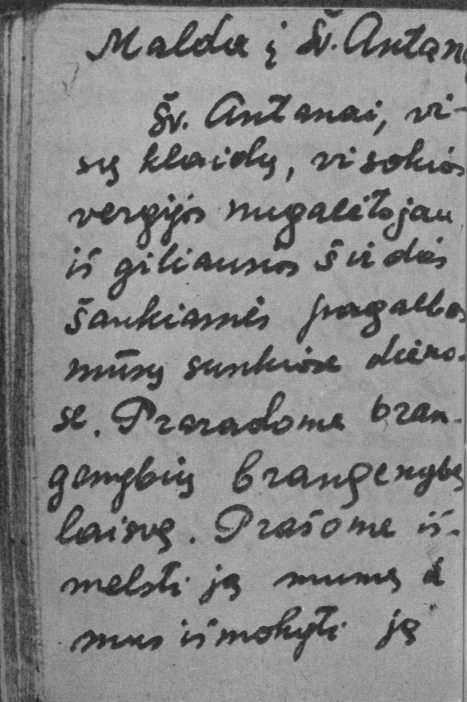 Malda į Šv. Antaną
Šv. Antanai, vi-
sų klaidų, visokios
vergijos nugalėtojau
iš giliausios širdies
šaukiamės pagalbos
mūsų sunkiose dieno-
se. Praradome bran-
genybių brangenybę
laisvę. Prašome iš-
melsti ją mums ir
mus išmokyti ją